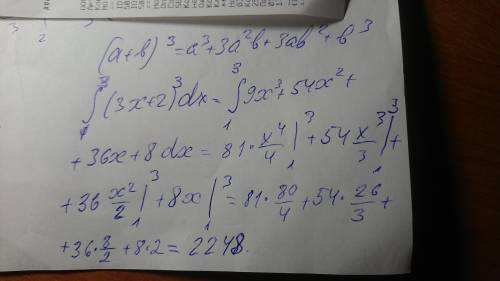 (a+b)³=a³+3a²b+3ab²+b³
∫₁³(3x+2)³dx=∫₁³9x³+54x²+
+36x+8dx=81·x⁴/4|₁³+54x³/3|₁³+
+36x²/2|₁³+8x|₁³=81·80/4+54·26/3+
+36·8/2+8·2=2248.